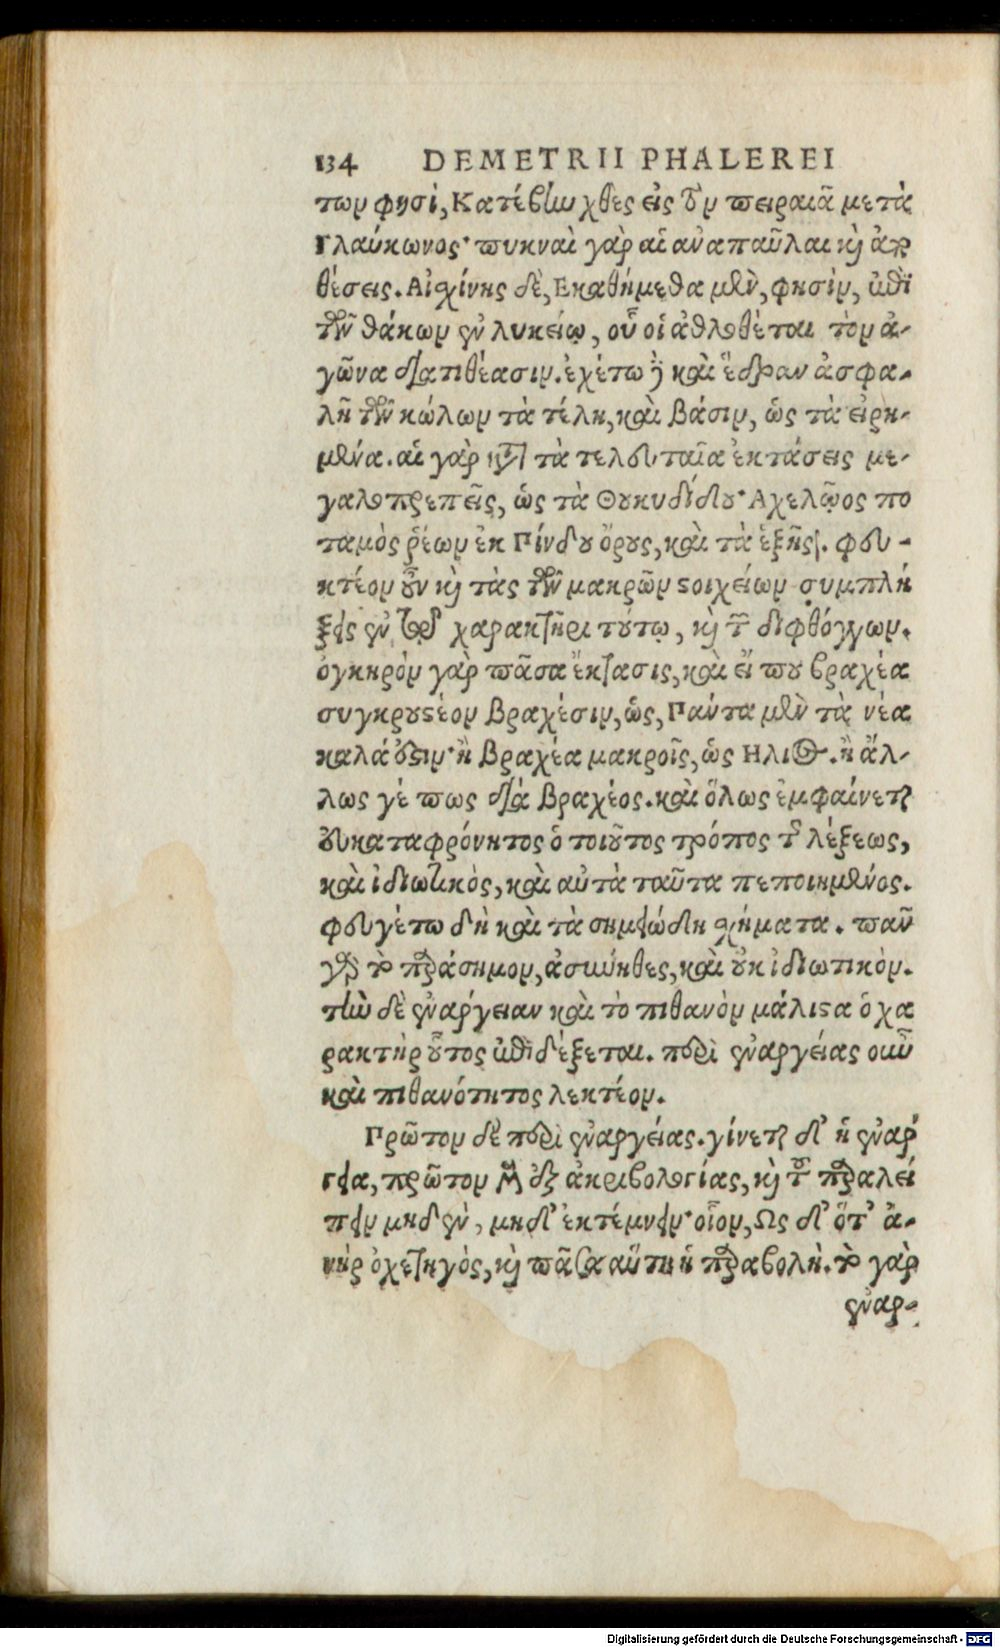 134 DEMETRII PHALEREI
των φησὶ, Κατέβην χθὲς εἰς τὸν πειραιᾶ μετὰ
Γλαύκωνος· πυκναὶ γὰρ αἱ ἀναπαῦλαι καὶ ἀπο
θέσεις. Αἰσχίνης δὲ, Εκαθήμεθα μὲν, φησὶν, ἐπὶ
τῶν θάκων ἐν λυκείῳ, οὗ οἱ ἀθλοθέται τὸν ἀ-
γῶνα διατιθέασιν. ἐχέτω δὲ καὶ ἕδραν ἀσφα-
λῆ τῶν κώλων τὰ τέλη, καὶ βάσιν, ὡς τὰ εἰρη-
μένα. αἱ γὰρ κατὰ τὰ τελευταῖα ἐκτάσεις με-
γαλοπρεπεῖς, ὡς τὰ Θουκυδίδου· Αχελῷος πο
ταμὸς ῥέων ἐκ Πίνδου ὄρους, καὶ τὰ ἑξῆς. φευ-
κτέον οὖν καὶ τὰς τῶν μακρῶν στοιχείων συμπλή
ξεις ἐν τῷ χαρακτῆρι τούτῳ, καὶ τῶν διφθόγγων.
ὀγκηρὸν γὰρ πᾶσα ἔκτασις, καὶ εἴ που βραχέα
συγκρουστέον βραχέσιν, ὡς, Πάντα μὲν τὰ νέα
καλά ἐστιν· ἢ βραχέα μακροῖς, ὡς Ηλιος. ἢ ἄλ-
λως γέ πως διὰ βραχέος. καὶ ὅλως ἐμφαίνεται
εὐκαταφρόνητος ὁ τοιοῦτος τρόπος τῆς λέξεως,
καὶ ἰδιωτικὸς, καὶ αὐτὰ ταῦτα πεποιημένος.
φευγέτω δὴ καὶ τὰ σημειώδη σχήματα. πᾶν
γὰρ τὸ παράσημον, ἀσύνηθες, καὶ οὐκ ἰδιωτικὸν.
τὴν δὲ ἐνάργειαν καὶ τὸ πιθανὸν μάλιστα ὁ χα
ρακτὴρ οὗτος ἐπιδέξεται. περὶ ἐναργείας οὖν
καὶ πιθανότητος λεκτέον.
Πρῶτον δὲ περὶ ἐναργείας. γίνεται δ' ἡ ἐνάρ
γεια, πρῶτον μὲν ἐξ ἀκριβολογίας, καὶ τοῦ παραλεί
πειν μηδὲν, μηδ' ἐκτέμνειν· οἷον, Ως δ' ὅτ' ἀ-
νὴρ ὀχετηγὸς, καὶ πᾶσα αὕτη ἡ παραβολὴ. τὸ γὰρ
ἐναρ-
Digitalisierung gefördert durch die Deutsche Forschungsgemeinschaft - DFG